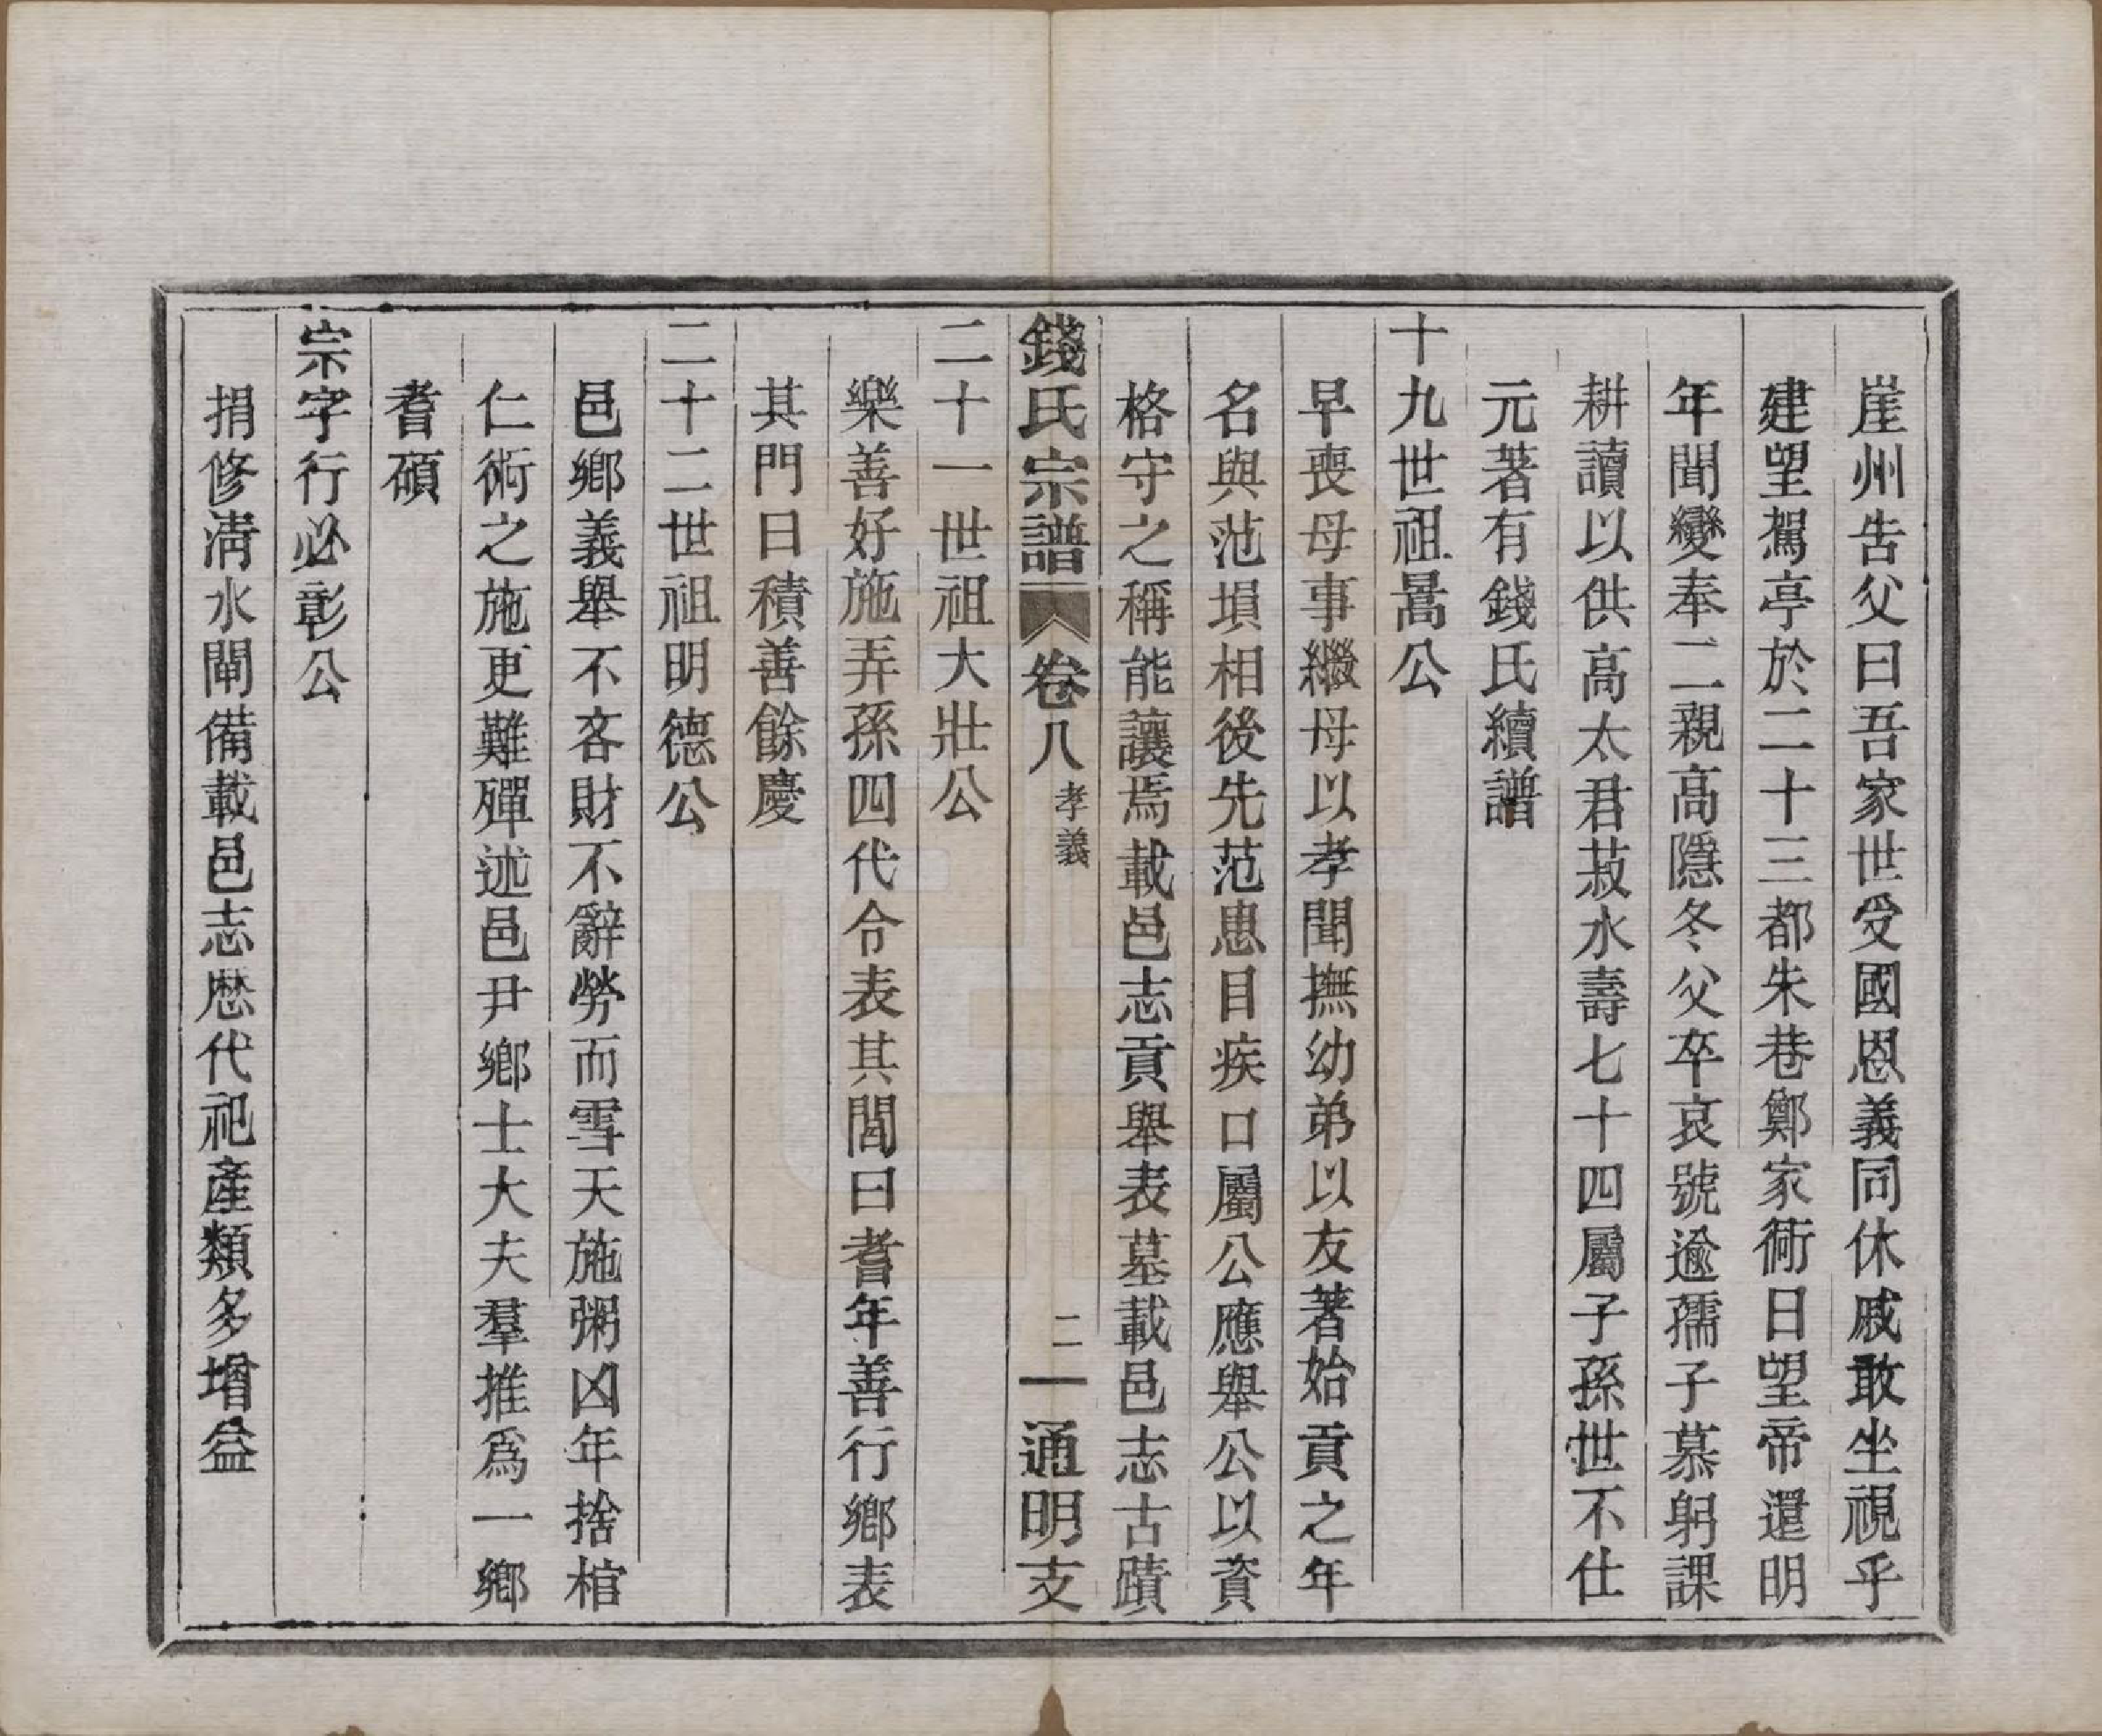 崖州告父曰吾家世受國恩義同休戚敢坐視乎
建望駕亭於二十三都朱巷鄭家衕日望帝還明
年聞變奉二親高隱冬父卒哀號逾孺子慕躬課
耕讀以供高太君菽水壽七十四屬子孫世不仕
元著有錢氏續譜
十九世祖暠公
早喪母事繼母以孝聞撫幼弟以友著始貢之年
名與范塤相後先范患目疾口屬公應舉公以資
格守之稱能讓焉載邑志貢舉表墓載邑志古蹟
錢氏宗譜 卷八 孝義 二 通明支
二十一世祖大壯公
樂善好施弄孫四代令表其閭曰耆年善行鄉表
其門曰積善餘慶
二十二世祖明德公
邑鄉義舉不吝財不辭勞而雪天施粥凶年捨棺
仁術之施更難殫述邑尹鄉士大夫羣推爲一鄉
耆碩
宗字行必彰公
捐修淸水閘備載邑志歷代祀產類多增益